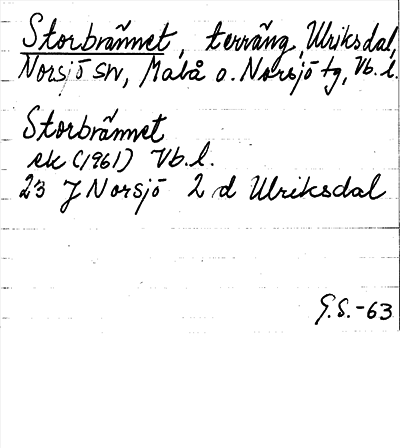 Storbrännet, terräng, Ulriksdal,
Norsjö sn, Malå o. Norsjö tg, Vb. l.
Storbrännet
ek (1961) Vb. l.
23 J Norsjö 2 d Ulriksdal
G.S.-63